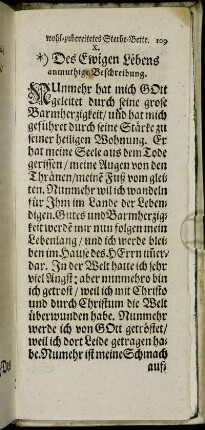 wohl-zubereitetes Sterbe-Bette. 109
X.
*) Des Ewigen Lebens
anmuthige Beschreibung.
NUnmehr hat mich GOtt
geleitet durch seine grose
Barmherzigkeit/ uñd hat mich
geführet durch seine Stärke zu
seiner heiligen Wohnung. Er
hat meine Seele aus dem Tode
gerissen/ meine Augen von den
Thränen/ meinẽ Fuß vom glei-
ten. Nunmehr wil ich wandeln
für Ihm im Lande der Leben-
digen. Gutes und Barmherzig-
keit werdẽ mir nun folgen mein
Lebenlang/ und ich werde blei-
ben im Hause des HErrn im̃er-
dar. In der Welt hatte ich sehr
viel Angst; aber nunmehro bin
ich getrost/ weil ich mit Christo
und durch Christum die Welt
überwunden habe. Nunmehr
werde ich von GOtt getröstet/
weil ich dort Leide getragen ha-
be. Numehr ist meine Schmach
auf-